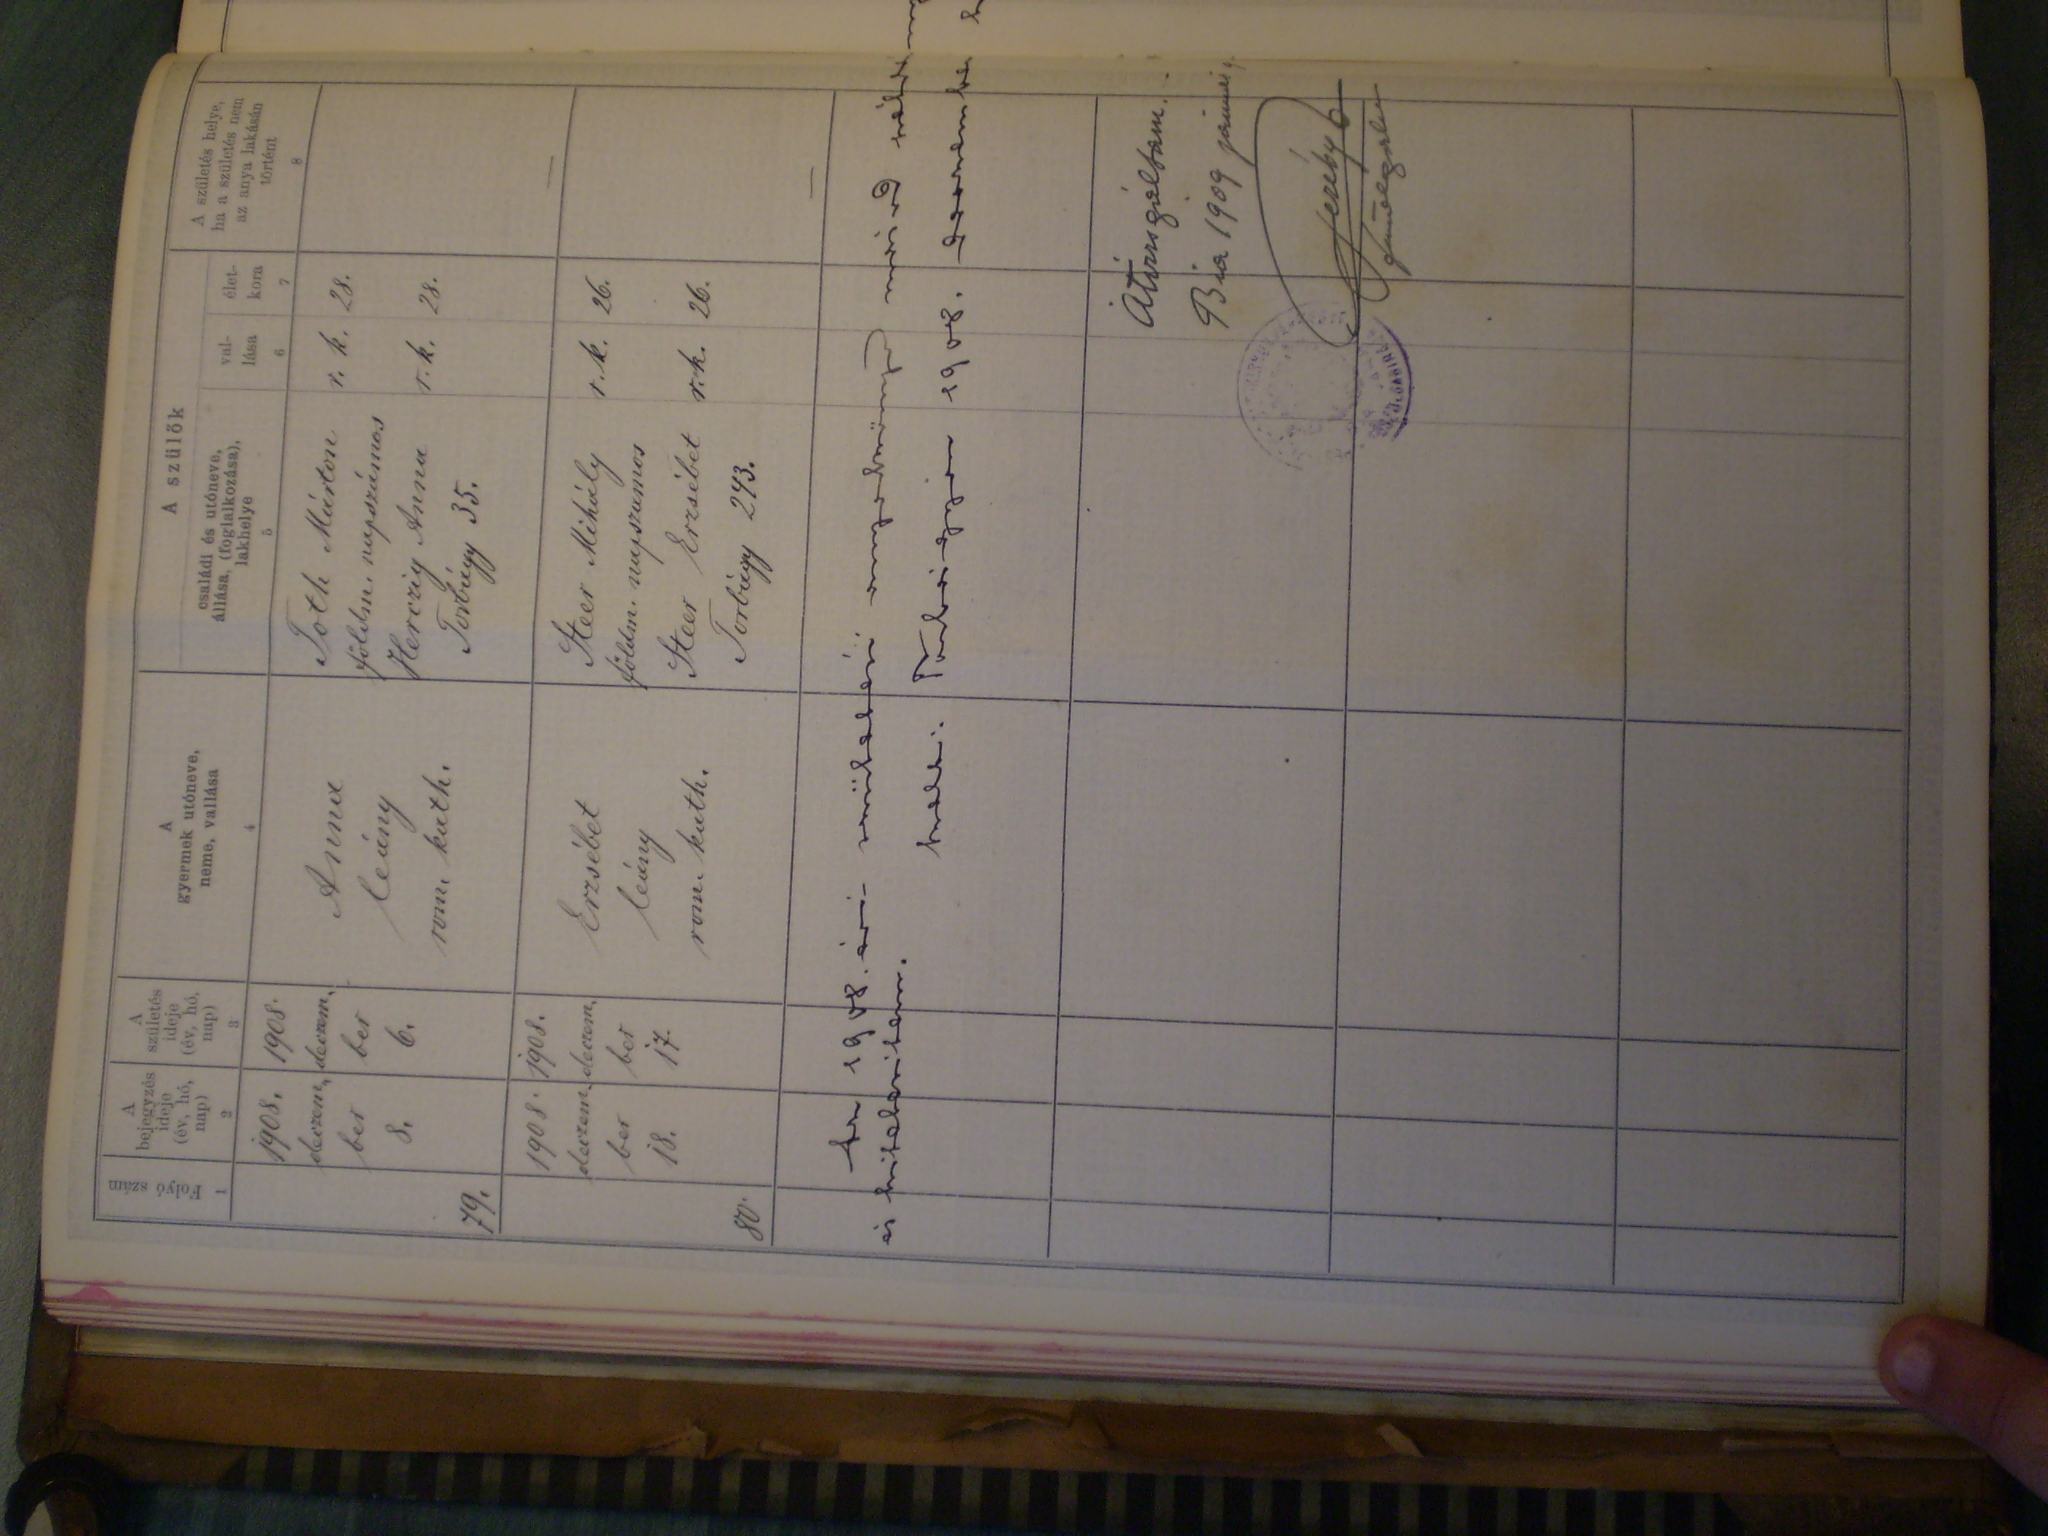 Folyó szám
1
A
bejegyzés
ideje
(év, hó,
nap)
2
A
születés
ideje
(év, hó,
nap)
3
A
gyermek utóneve,
neme, vallása
4
A szülők
családi és utóneve,
állása, (foglalkozása),
lakhelye
5
val-
lása
6
élet-
kora
7
A születés helye,
ha a születés nem
az anya lakásán
történt
8
79.
1908.
deczem,
ber
8.
1908.
deczem,
ber
6.
Anna
leány
rom. kath.
Toth Márton
földm. napszámos
Herczig Anna
Torbágy 35.
r. k. 28.
r. k. 28.
80.
1908.
deczem,
ber
18.
1908.
deczem,
ber
17.
Erzsébet
leány
rom. kath.
Steer Mihály
földm. napszámos
Steer Erzsébet
Torbágy 243.
r. k. 26.
r. k. 26.
—
—
1908. évi születési anyakönyvet
és hitelesítem.
1908.
Átvizsgáltam.
Bia 1909